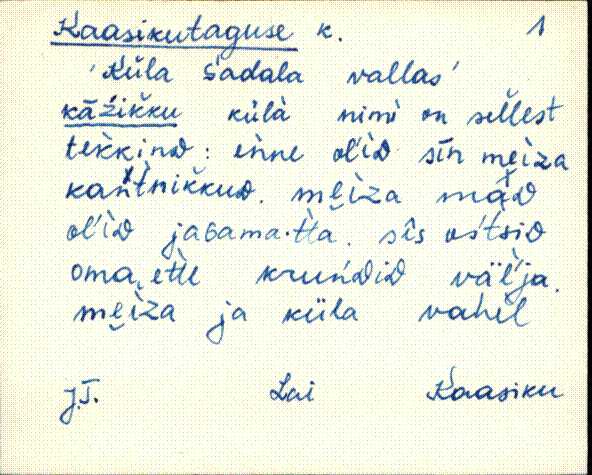 Kaasikutaguse k. 1
'Küla Sadala vallas'
kāžikku külà nimi on sellest
tekkinD : enne ol'iD sīn me̬i̬za
kantnikkuD. me̬i̬za māD
ol'iD jagama·tta. sîs os'tsiD
oma ette krun'DiD väl'ja.
me̬i̬za ja küla vahel
J.T. Lai Kaasiku